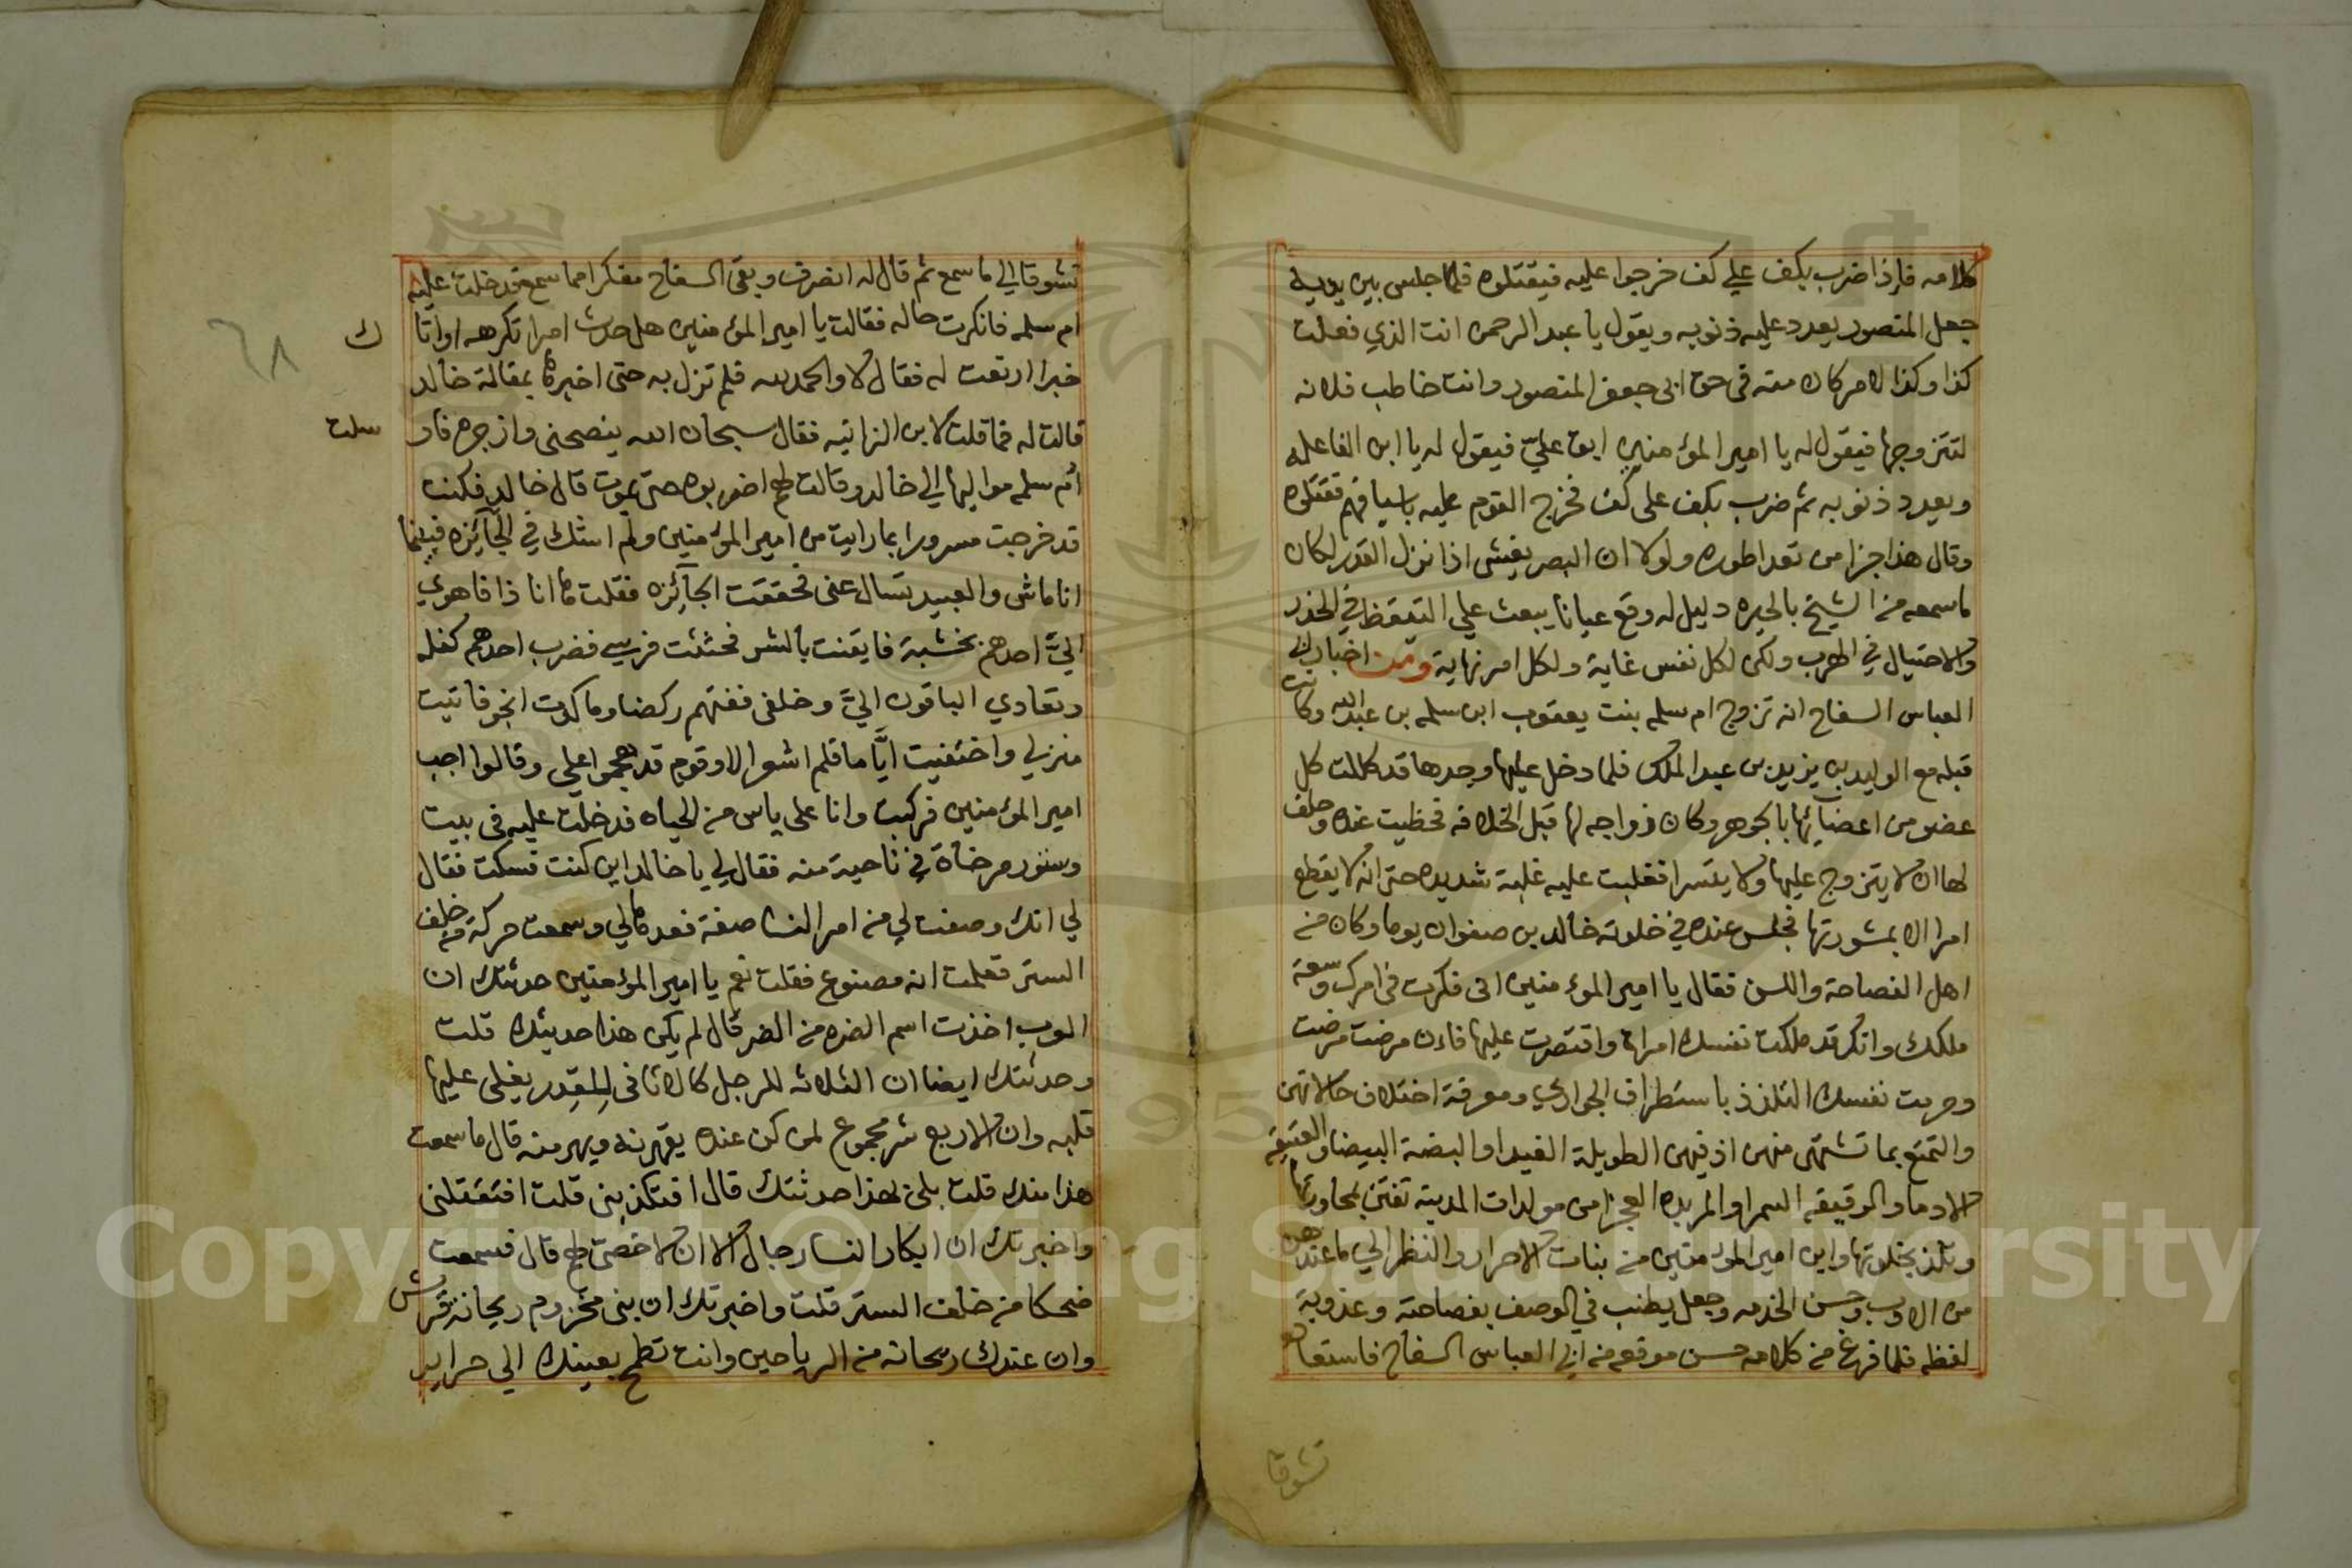 كلامه فاذا ضرب بكف علي كف خرجوا عليه فيقتلوه فلما جلس بين يديه
جعل المنصور يعدد عليه ذنوبه ويقول يا عبد الرحمن انت الذي فعلت
كذا وكذا لامر كان منه في حق ابي جعفر المنصور وانت خاطب فلانه
لتتزوجها فيقول له يا امير المؤمنين ابق عليّ فيقول له يا ابن الفاعله
ويعدد ذنوبه ثم ضرب بكف على كف فخرج القوم عليه باسيافهم فقتلوه
وقال هذا جزا من تعدا طوره ولولا ان البصر يغشى اذا نزل القدر لكان
ما سمعه من الشيخ بالحيره دليل له وقع عيانا يبعث علي التيقظ في الحذر
والاحتيال في الهرب ولكن لكل نفس غاية ولكل امر نهاية ومن اخبار ابي
العباس السفاح انه تزوج ام سلمه بنت يعقوب ابن سلمه بن عبد الله وكانت
قبله مع الوليد بن يزيد بن عبد الملك فلما دخل عليها وجدها قد كللت كل
عضو من اعضآئها بالجوهر وكان زواجه لها قبل الخلافه فحظيت عنده وحلف
لها ان لا يتزوج عليها ولا يتسرا فغلبت عليه غلبة شديده حتى انه لا يقطع
امرا الا بمشورتها فجلس عنده في خلوته خالد بن صفوان يوما وكان من
اهل الفصاحة واللسن فقال يا امير المؤمنين اني فكرت في امرك وسعة
ملكك وانك قد ملكت نفسك امراة واقتصرت عليها فان مرضت مرضت
وحرمت نفسك التلذذ باستطراف الجواري ومعرفة اختلاف حالاتهن
والتمتع بما تشتهى منهن اذ فيهن الطويلة الغيدا والبضة البيضا والعتيقة
الادما والرقيقه السمرا والبربريه العجزا من مولدات المدينة تفتن بمحاورتها
وتلذ بخلوتها واين امير المؤمنين من بنات الاحرار والنظر الي ما عندهن
من الادب وحسن الخدمه وجعل يطنب في الوصف بفصاحة وعذوبة
لفظه فلما فرغ من كلامه حسن موقعه من ابي العباس السفاح فاستعاده
تشوقا
تشوقا الي ما سمع ثم قال له انصرف وبقى السفاح مفكرا مما سمع فدخلت عليه
ام سلمه فانكرت حاله فقالت يا امير المؤمنين هل حدث امرا تكرهه او اتا
ك
خبرا ارتعت له فقال لا والحمد لله فلم تزل به حتى اخبرها بمقالة خالد
قالت له فما قلت لابن الزانيه فقال سبحان الله ينصحني وازجره فار
سلت
ام سلمه مواليها الي خالد وقالت لهم اضربوه حتى يموت قال خالد فكنت
قد خرجت مسرورا بما رايت من امير المؤمنين ولم اشك في الجآئزه فبينما
انا ماشى والعبيد تسال عني فحققت الجآئزه فقلت ها انا ذا فاهوي
اليّ احدهم بخشبة فايقنت بالشر فحثثت فرسي فضرب احدهم كفله
وتعادي الباقون اليّ وخلفي ففتهم ركضا وما كدت انجو فاتيت
منزلي واختفيت ايّاما فلم اشعر الا وقوم قد هجموا علي وقالوا اجب
امير المؤمنين فركبت وانا على ياس من الحياه فدخلت عليه في بيت
وستور مرخاة في ناحية منه فقال لي يا خالد اين كنت فسكت فقال
لي انك وصفت لي من امر النسا صفة فعدها لي وسمعت حركة من خلف
الستر فعلمت انه مصنوع فقلت نعم يا امير المؤمنين حدثتك ان
العرب اخذت اسم الضره من الضر قال لم يكن هذا حديثك قلت
وحدثتك ايضا ان الثلاثه للرجل كالاثافى للقدر يغلى عليها
قلبه وان الاربع شر مجموع لمن كن عنده يقهرنه ويهرمنه قال ما سمعت
هذا منك قلت بلى لهذا حدثتك قال افتكذبنى قلت افتقتلنى
واخبرتك ان ابكار النسا رجال الا ان لا خصى لهم قال فسمعت
ضحكا من خلف الستر قلت واخبرتك ان بنى مخزوم ريحانة قريش
وان عندك ريحانه من الرياحين وانت تطمح بعينك الي حراير
٦٨